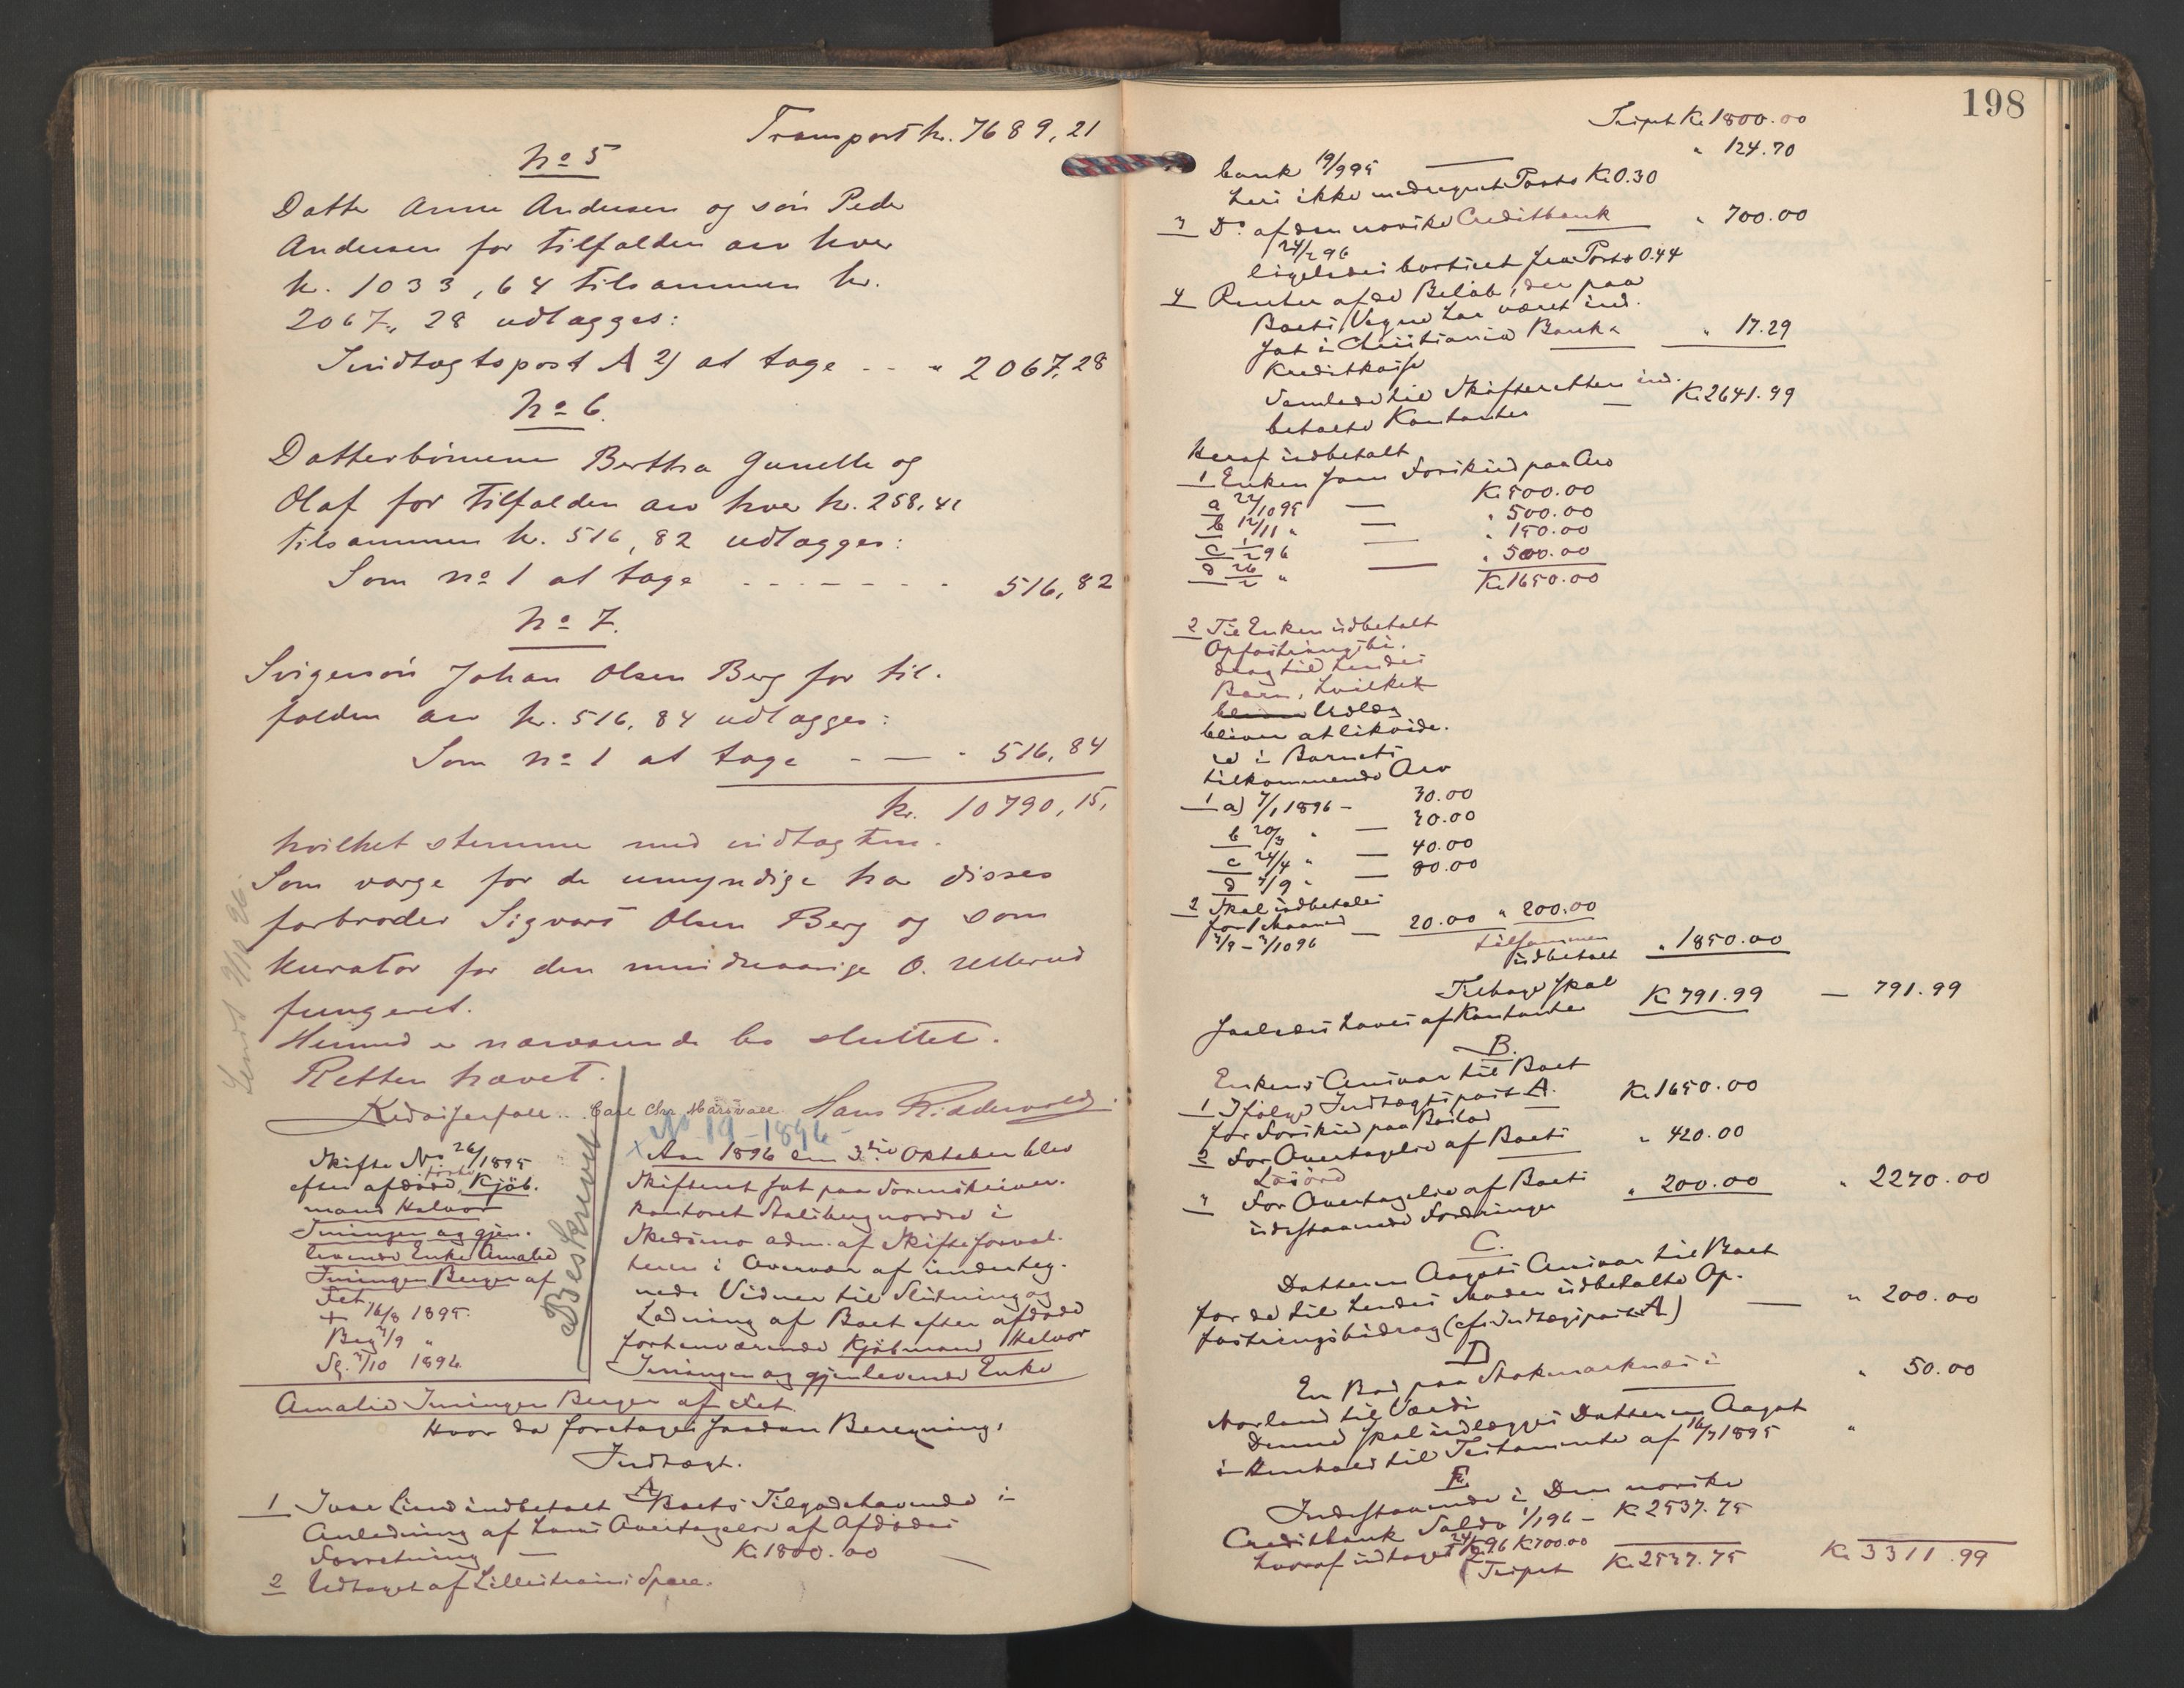 Transport kr. 7689,21
No 5
Datter Anne Andersen og søn Peder
Andersen for tilfalden arv hver
kr. 1033,64 tilsammen kr.
2067,28 udlægges:
Indtægtspost A 2) at tage - - " 2067,28
No 6.
Datterbørnene Bertha Gunelle og
Olaf for tilfalden arv hver kr. 258,41
tilsammen kr. 516,82 udlægges:
Som no 1 at tage - - - - - - - 516,82
No 7.
Svigersøn Johan Olsen Berg for til-
falden arv kr. 516,84 udlægges:
Som no 1 at tage - — - 516,84
kr. 10790,15,
hvilket stemmer med indtægten.
Som værge for de umyndige har disses
farbroder Sigvart Olsen Berg og som
kurator for den mindreaarige O.
fungeret.
Hermed er nærværende bo sluttet.
Retten hævet.
Carl Chr. Hans Ridderwold
No 19-1896-
Beskrevet
Skifte No 26/1895
efter afdøde forhv. Kjøb-
mand Halvor
Iningen og gjen-
levende Enke Amalie
Iningen Berger af
Fet
+ 16/8 1895.
Beg 3/9 "
Sl. 3/10 1896.
Aar 1896 den 3die Oktober blev
Skifteret sat paa Sorenskriver-
kontoret Stalsberg nordre i
Skedsmo adm. af Skifteforval-
teren i Overvær af underteg-
nede Vidner til Slutning og
Lodning af Boet efter afdøde
forhenværende Kjøbmand Halvor
Iningen og gjenlevende Enke
Amalie Iningen Berger af Fet.
Hvor da foretages saadan Beregning:
Indtægt.
A
1 Ivar Lund indbetalt Boets Tilgodehavende i
Anledning af hans Overtagelse af Afdødes
Forretning — Kr 1800.00
2 Udtaget af Lillestrøms Spare-
198
Transport Kr 1800.00
bank 19/9 95 — " 124.70
heri ikke medregnet Porto Kr 0.30
3 Do af den norske Creditbank " 700.00
24/2 96
ligeledes bortseet fra Porto 0.44
4 Renter af de Beløb, der paa
Boets Vegne har været ind-
sat i Christiania Bank &
Kreditkasse " 17.29
Samlede til Skifteretten ind-
betalte Kontanter — Kr 2641.99
Heraf udbetalt
1 Enken som Forskud paa Arv
a 22/10 95 — Kr 500.00
b 12/11 " — " 500.00
c 1/2 96 — " 150.00
d 26/2 " — " 500.00
Kr 1650.00
2 Til Enken udbetalt
Opfostringsbi-
drag til hendes
Barn, hvilket
Udlæg
bliver at likvide-
re i Barnets
tilkommende Arv
1 a) 7/1 1896 - 30.00
b 20/3 " — 30.00
c 24/4 " — 40.00
d 3/9 " — 80.00
2 Skal udbetales
for 1 Maaned
3/9 - 3/10 96 — 20.00 " 200.00
tilsammen
udbetalt " 1850.00
Tilbage skal
saaledes haves af Kontanter Kr 791.99 — 791.99
B.
Enkens Ansvar til Boet
1 Ifølge Indtægtspost A.
for Forskud paa Boslod Kr 1650.00
2 For Overtagelse af Boets
Løsøre " 420.00
3 For Overtagelse af Boets
udestaaende Fordringer " 200.00 " 2270.00
C.
Datteren Aagots Ansvar til Boet
for de til hendes Moder udbetalte Op-
fostringsbidrag (cfr Indtægtspost A) — " 200.00
D
En Bod paa Stokmarknæs i
Norland til Værdi " 50.00
Denne skal udlægges Datteren Aagot
i Henhold til Testamente af 16/7 1895 "
E
Indestaaende i Den norske
Creditbank Saldo 1/1 96 - Kr 2537.75
hvoraf udtaget 24/2 96 Kr 700.00
Transport Kr 2537.75 Kr 3311.99